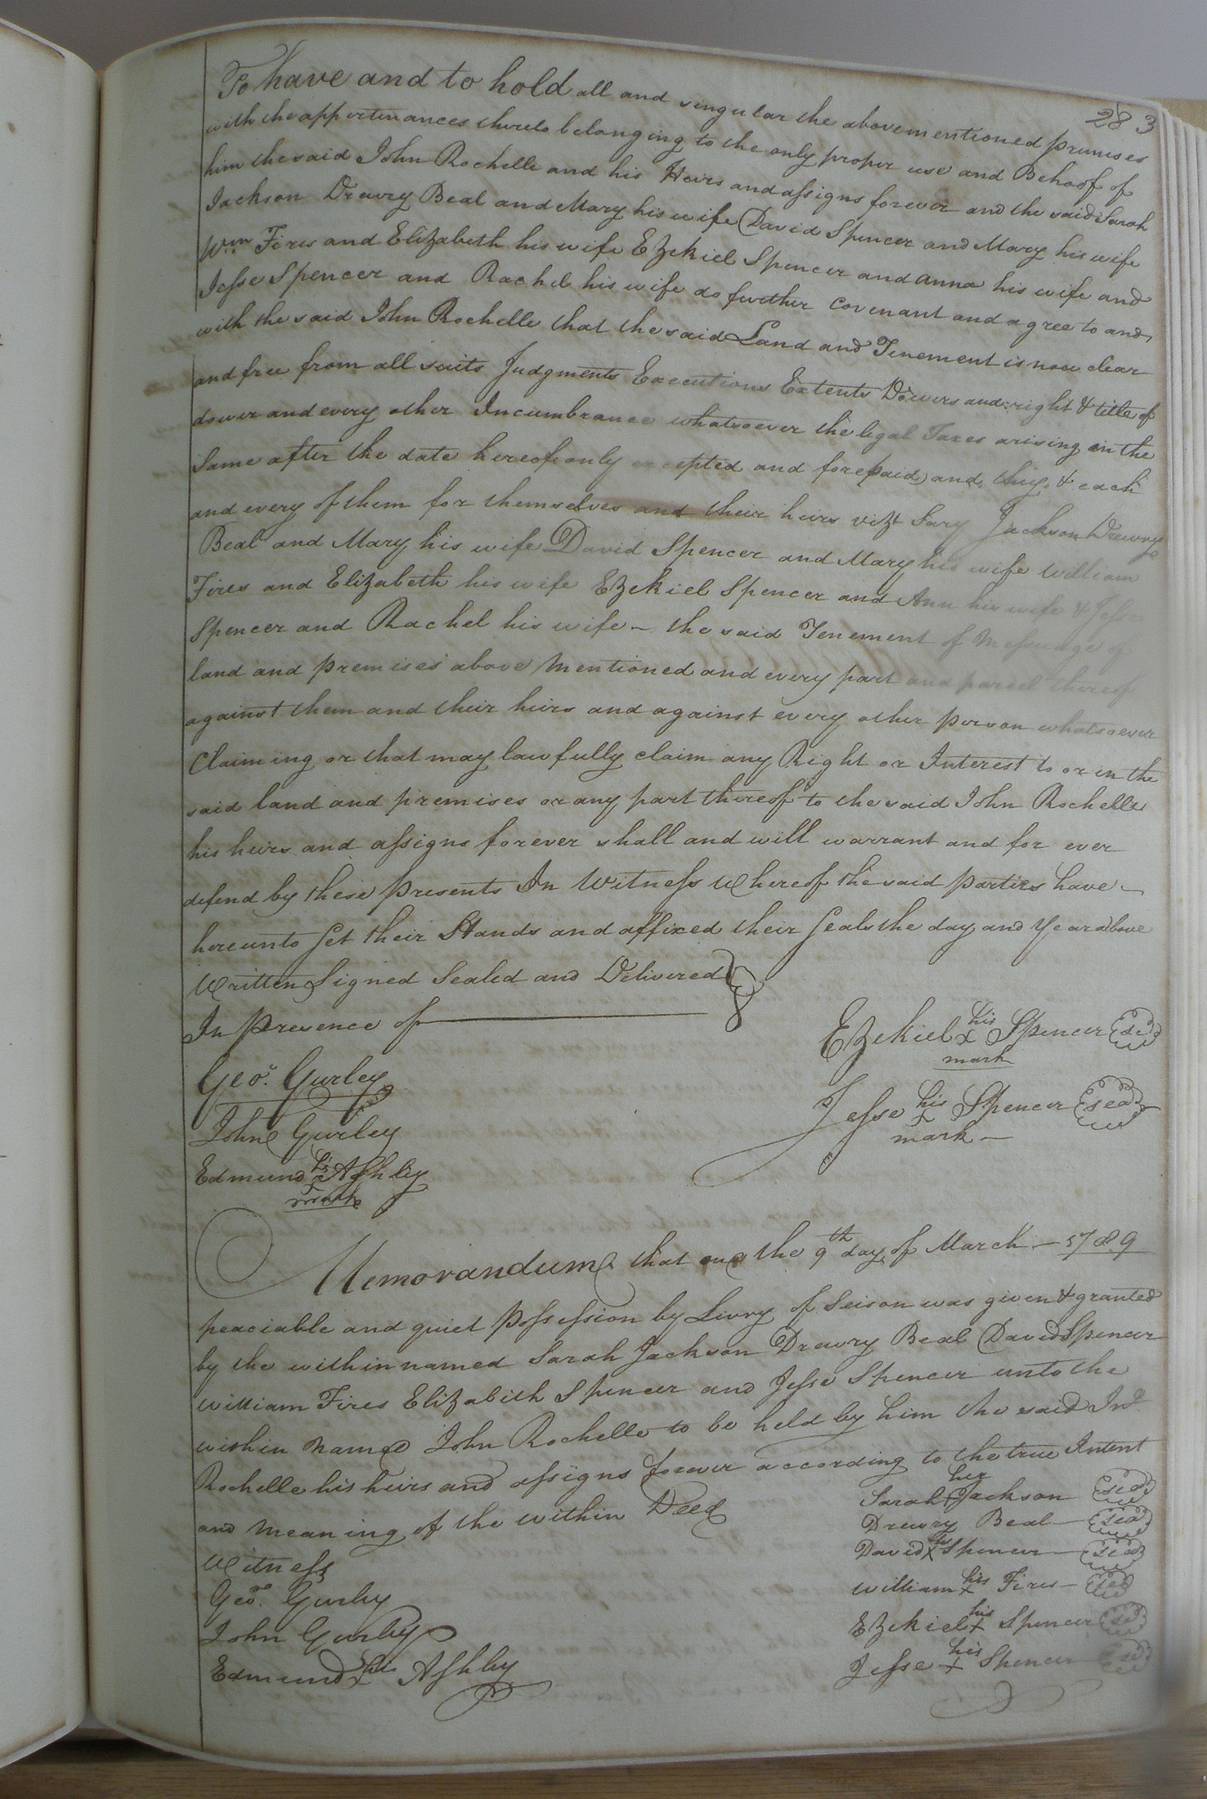 283
To have and to hold all and singular the abovementioned premises
with the appertinances thereto belonging to the only proper use and Behoof of
him the said John Rochelle and his Heirs and assigns forever and the said Sarah
Jackson Drewry Beal and Mary his wife David Spencer and Mary his wife
Wm Fires and Elizabeth his wife Ezekiel Spencer and anna his wife and
Jesse Spencer and Rachel his wife do further Covenant and agree to and
with the said John Rochelle that the said Land and Tenement is now clear
and free from all suits Judgments Executions Extents Dowers and right & title of
dower and every other Incumbrance whatsoever the legal Taxes arising on the
Same after the date hereof only excepted and forepaid and they & each
and every of them for themselves and their heirs vizt Sary Jackson Drewry
Beal and Mary his wife David Spencer and Mary his wife William
Fires and Elizabeth his wife Ezekiel Spencer and Ann his wife & Jesse
Spencer and Rachel his wife – the said Tenement of Messuage of
land and premises above mentioned and every part and parcel thereof
against them and their heirs and against every other person whatsoever
Claiming or that may lawfully claim any Right or Interest to or in the
said land and premises or any part thereof to the said John Rochelle
his heirs and assigns forever shall and will warrant and for ever
defend by these presents In Witness Whereof the said parties have –
hereunto Set their Hands and affixed their Seals the day and Year above
Written Signed Sealed and Delivered
In presence of
Ezekiel his x mark Spencer seal
Geo. Gurley
Jesse his x mark Spencer seal
John Gurley
Edmund his x mark Ashley
Memorandum that on the 9th day of March – 1789
peaciable and quiet possession by Livry of Seison was given & granted
by the within named Sarah Jackson Drewry Beal David Spencer
William Fires Elizabith Spencer and Jesse Spencer unto the
within named John Rochelle to be held by him the said Jno
Rochelle his heirs and assigns forever according to the true Intent
and meaning of the within Deed
Sarah her x Jackson seal
Drewry Beal – seal
Witness
David his x Spencer – seal
Geo. Gurley
William his x Fires – seal
John Gurley
Ezekiel his x Spencer seal
Edmund his x Ashley
Jesse his x Spencer seal